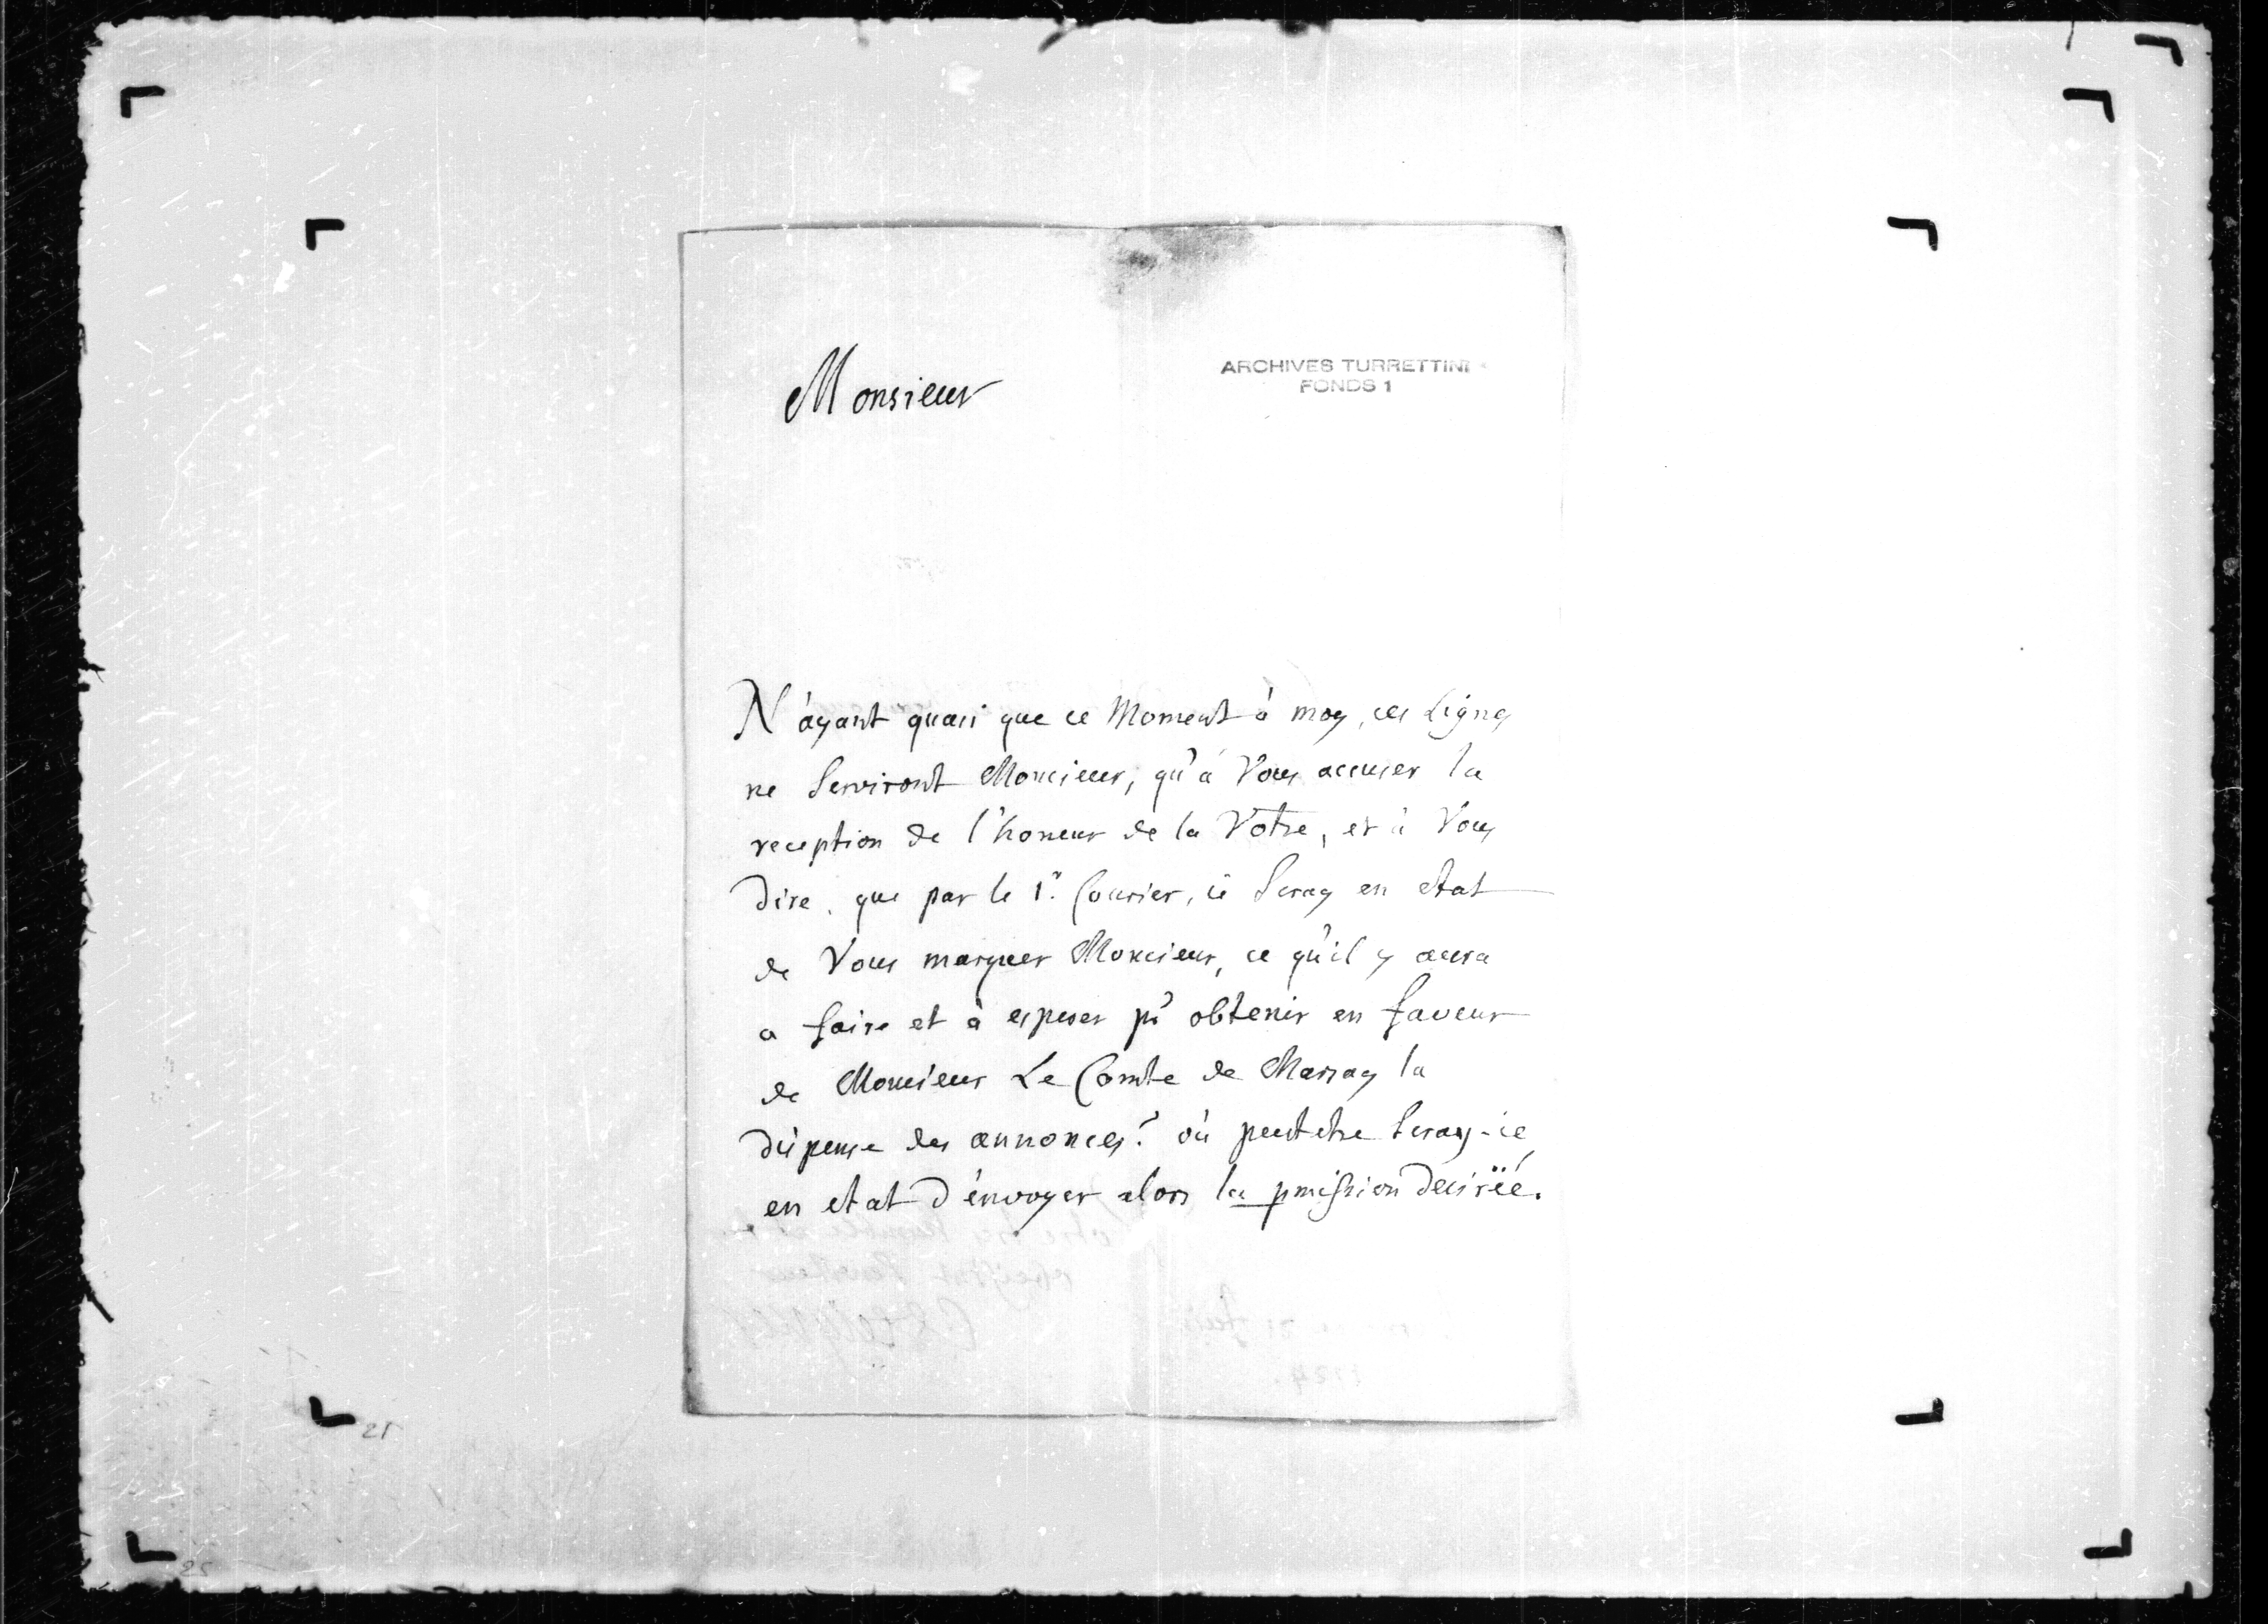 Monsieur
ARCHIVES TURRETTINI
FONDS 1
N'ayant quasi que ce Moment à moy, ces Lignes
ne Serviront Monsieur, qu'à Vous accuser la
reception de l'honeur de la Votre, et à Vous
dire, que par le 1.r Courier, ie Seray en etat
de Vous marquer Monsieur, ce qu'il y aura
a faire et à esperer pr obtenir en faveur
de Monsieur Le Comte de Marsay la
dispense des annonces? où peutetre Seray-ie
en etat d'énvoyer alors la pmission desirëé.
21
25